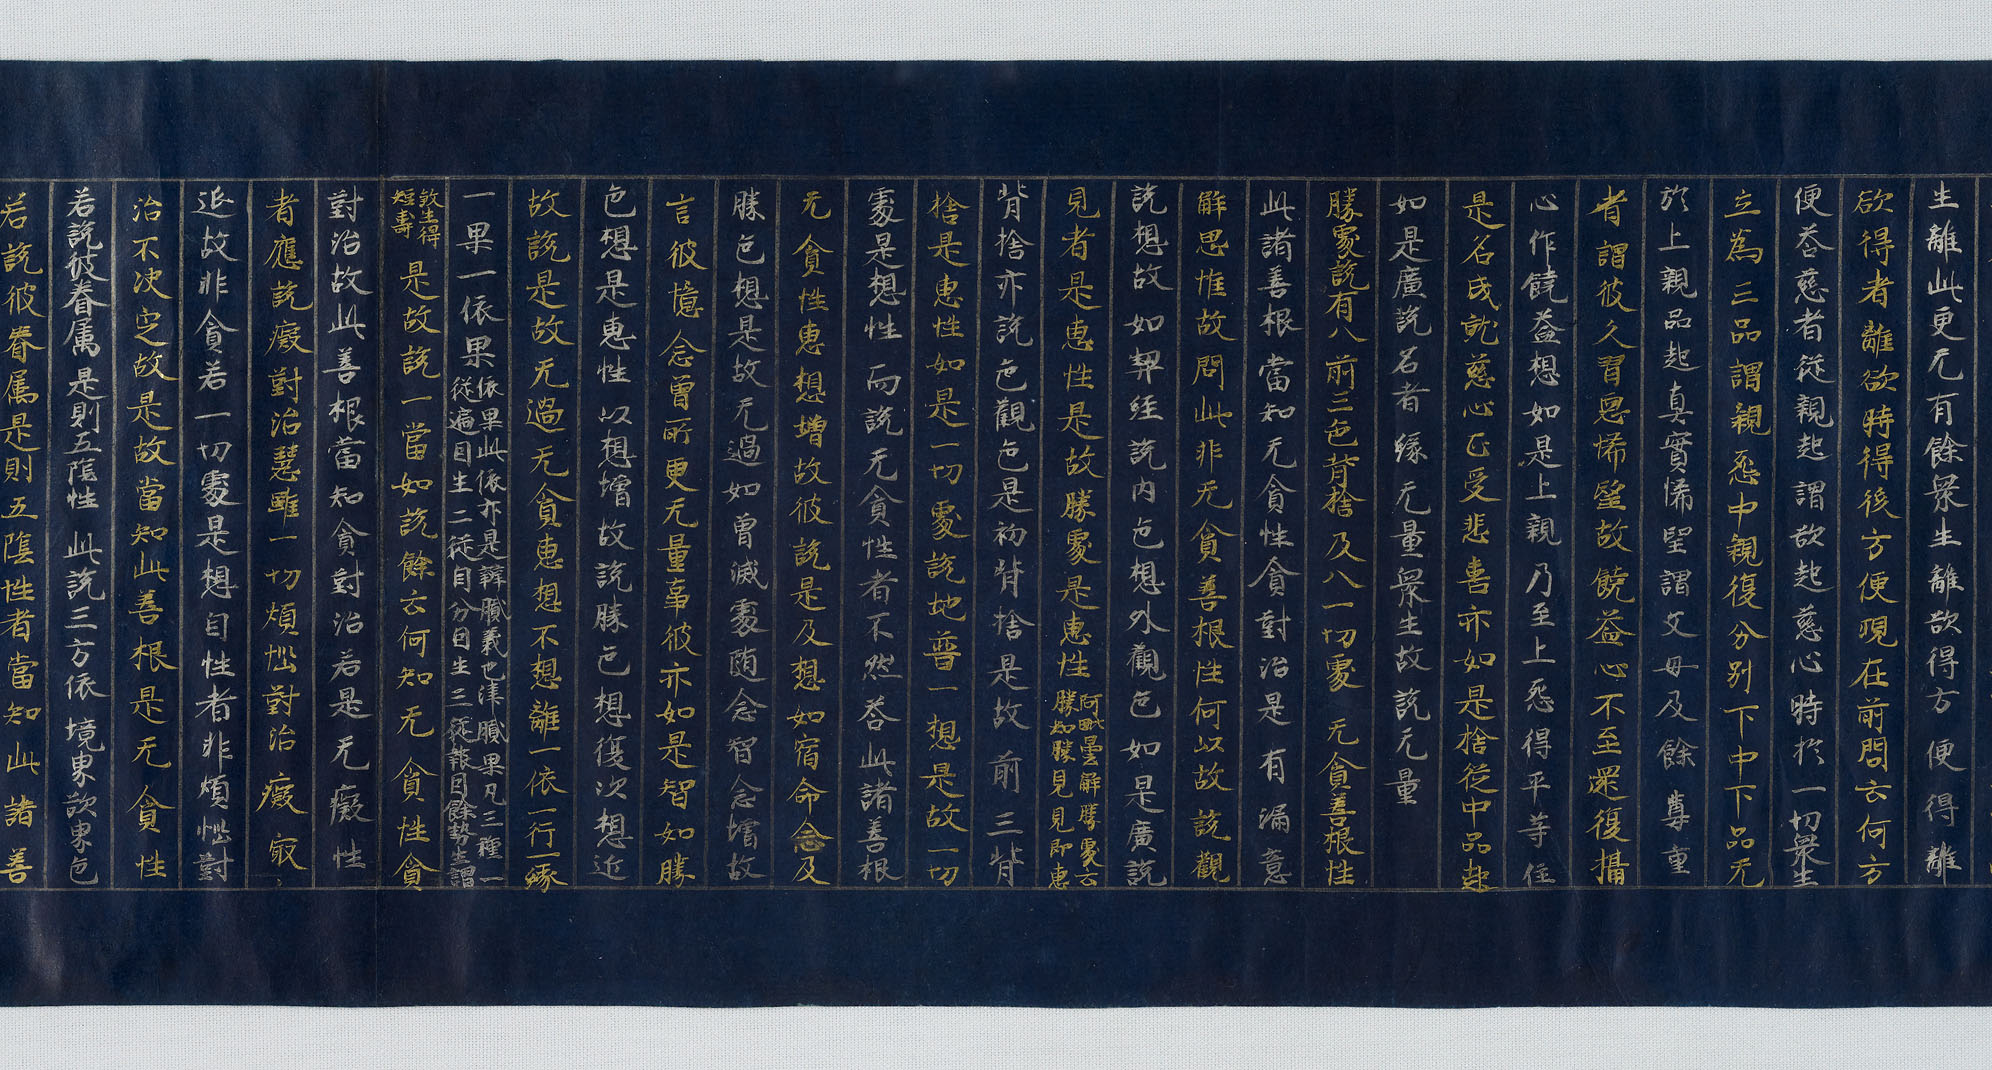 生離此更无有餘衆生離欲得方便得離
欲得者離欲時得後方便現在前問云何方
便荅慈者從親起謂欲起慈心時於一切衆生
立為三品謂親怨中親復分別下中下品无
於上親品起真實悕望謂父母及餘尊重
者謂彼久習惡悕望故饒益心不至還復攝
心作饒益想如是上親乃至上怨得平等住
是名成就慈心正受悲喜亦如是捨從中品起
如是廣說名者緣无量衆生故說无量
勝處說有八前三色背捨及八一切處无貪善根性
此諸善根當知无貪性貪對治是有漏意
解思惟故問此非无貪善根性何以故說觀
說想故如契經說內色想外觀色如是廣說
見者是惠性是故勝處是惠性阿毗曇解勝處云勝知勝見見即惠
背捨亦說色觀色是初背捨是故前三背
捨是惠性如是一切處說地普一想是故一切
處是想性而說无貪性者不然荅此諸善根
无貪性惠想增故彼說是及想如宿命念及
勝色想是故无過如曾滅處随念智念增故
言彼憶念曾所更无量事彼亦如是智如勝
色想是惠性以想增故說勝色想復次想近
故說是故无過无貪惠想不想離一依一行一緣
一果一依果依果此依亦是辭膩義也津膩果凡三種一從遍因生二從自分因生三從報因餘勢生謂
敦生得短壽是故說一當如說餘云何知无貪性貪
對治故此善根當知貪對治若是无癡性
者應說癡對治慧雖一切煩惱對治癡冣
近故非貪若一切處是想自性者非煩惱對
治不决定故是故當知此善根是无貪性
若說彼眷属是則五陰性此說三方依境界欲界色
若說彼眷属是則五陰性者當知此諸善